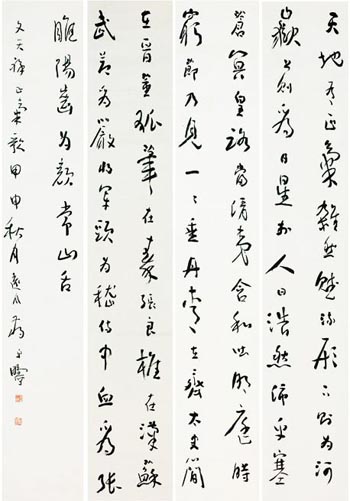 天地有正氣雜然賦流形下則為河
嶽上則為日星於人曰浩然沛乎塞
蒼冥皇路當清夷含和吐明庭時
窮節乃見一々垂丹青在齊太史簡
在晉董狐筆在秦張良椎在漢蘇
武節為嚴將軍頭為嵇侍中血為張
睢陽齒為顏常山舌
文天祥正氣歌甲申秋月